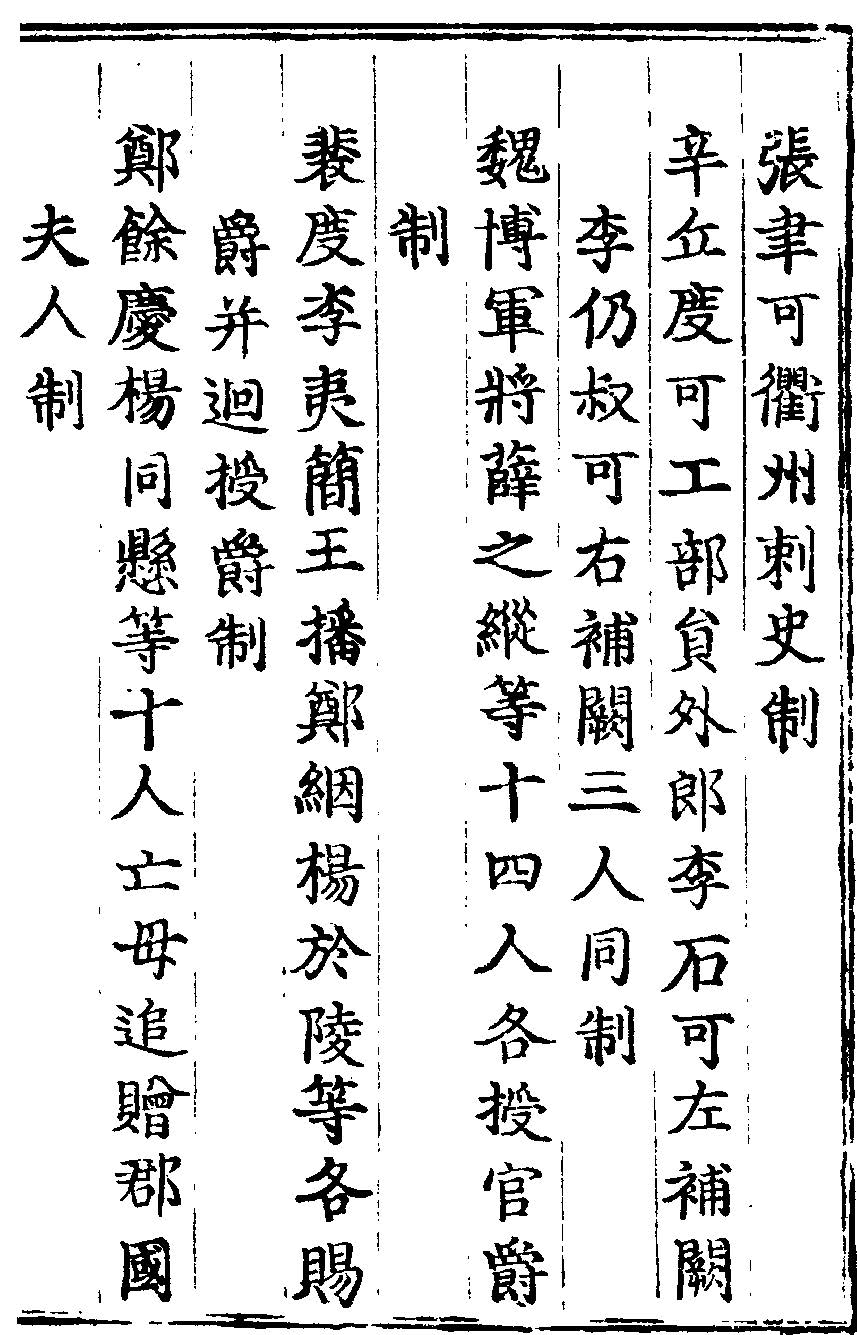 張聿可衢州刺史制
辛丘度可工部貟外郎李石可左補闕
李仍叔可右補闕三人同制
魏博軍將薛之縱等十四人各授官爵
制
裴度李夷簡王播鄭絪楊於陵等各賜
爵并迴授爵制
鄭餘慶楊同懸等十人亡母追贈郡國
夫人制